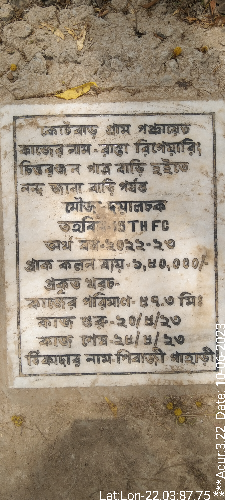 কোটবাড় গ্রাম পঞ্চায়েত
কাজের নাম-রাস্তা রিপেয়ারিং
চিত্তরঞ্জন পাত্র বাড়ি হইতে
নন্দ জানা বাড়ি পর্যন্ত
মৌজা-দয়ালচক
তহবিল-15TH FC
অর্থ বর্ষ-২০২২-২৩
প্রাক কলন ব্যয়-১,৪০,০০০/-
প্রকৃত খরচ-
কাজের পরিমাণ-৪৭.৩ মিঃ
কাজ শুরু-২০/৪/২৩
কাজ শেষ-২৪/৪/২৩
ঠিকাদার নাম-শিবাজী পাহাড়ী
Lat:Lon-22.03:87.75
***Acur:3.22 Date: 2023